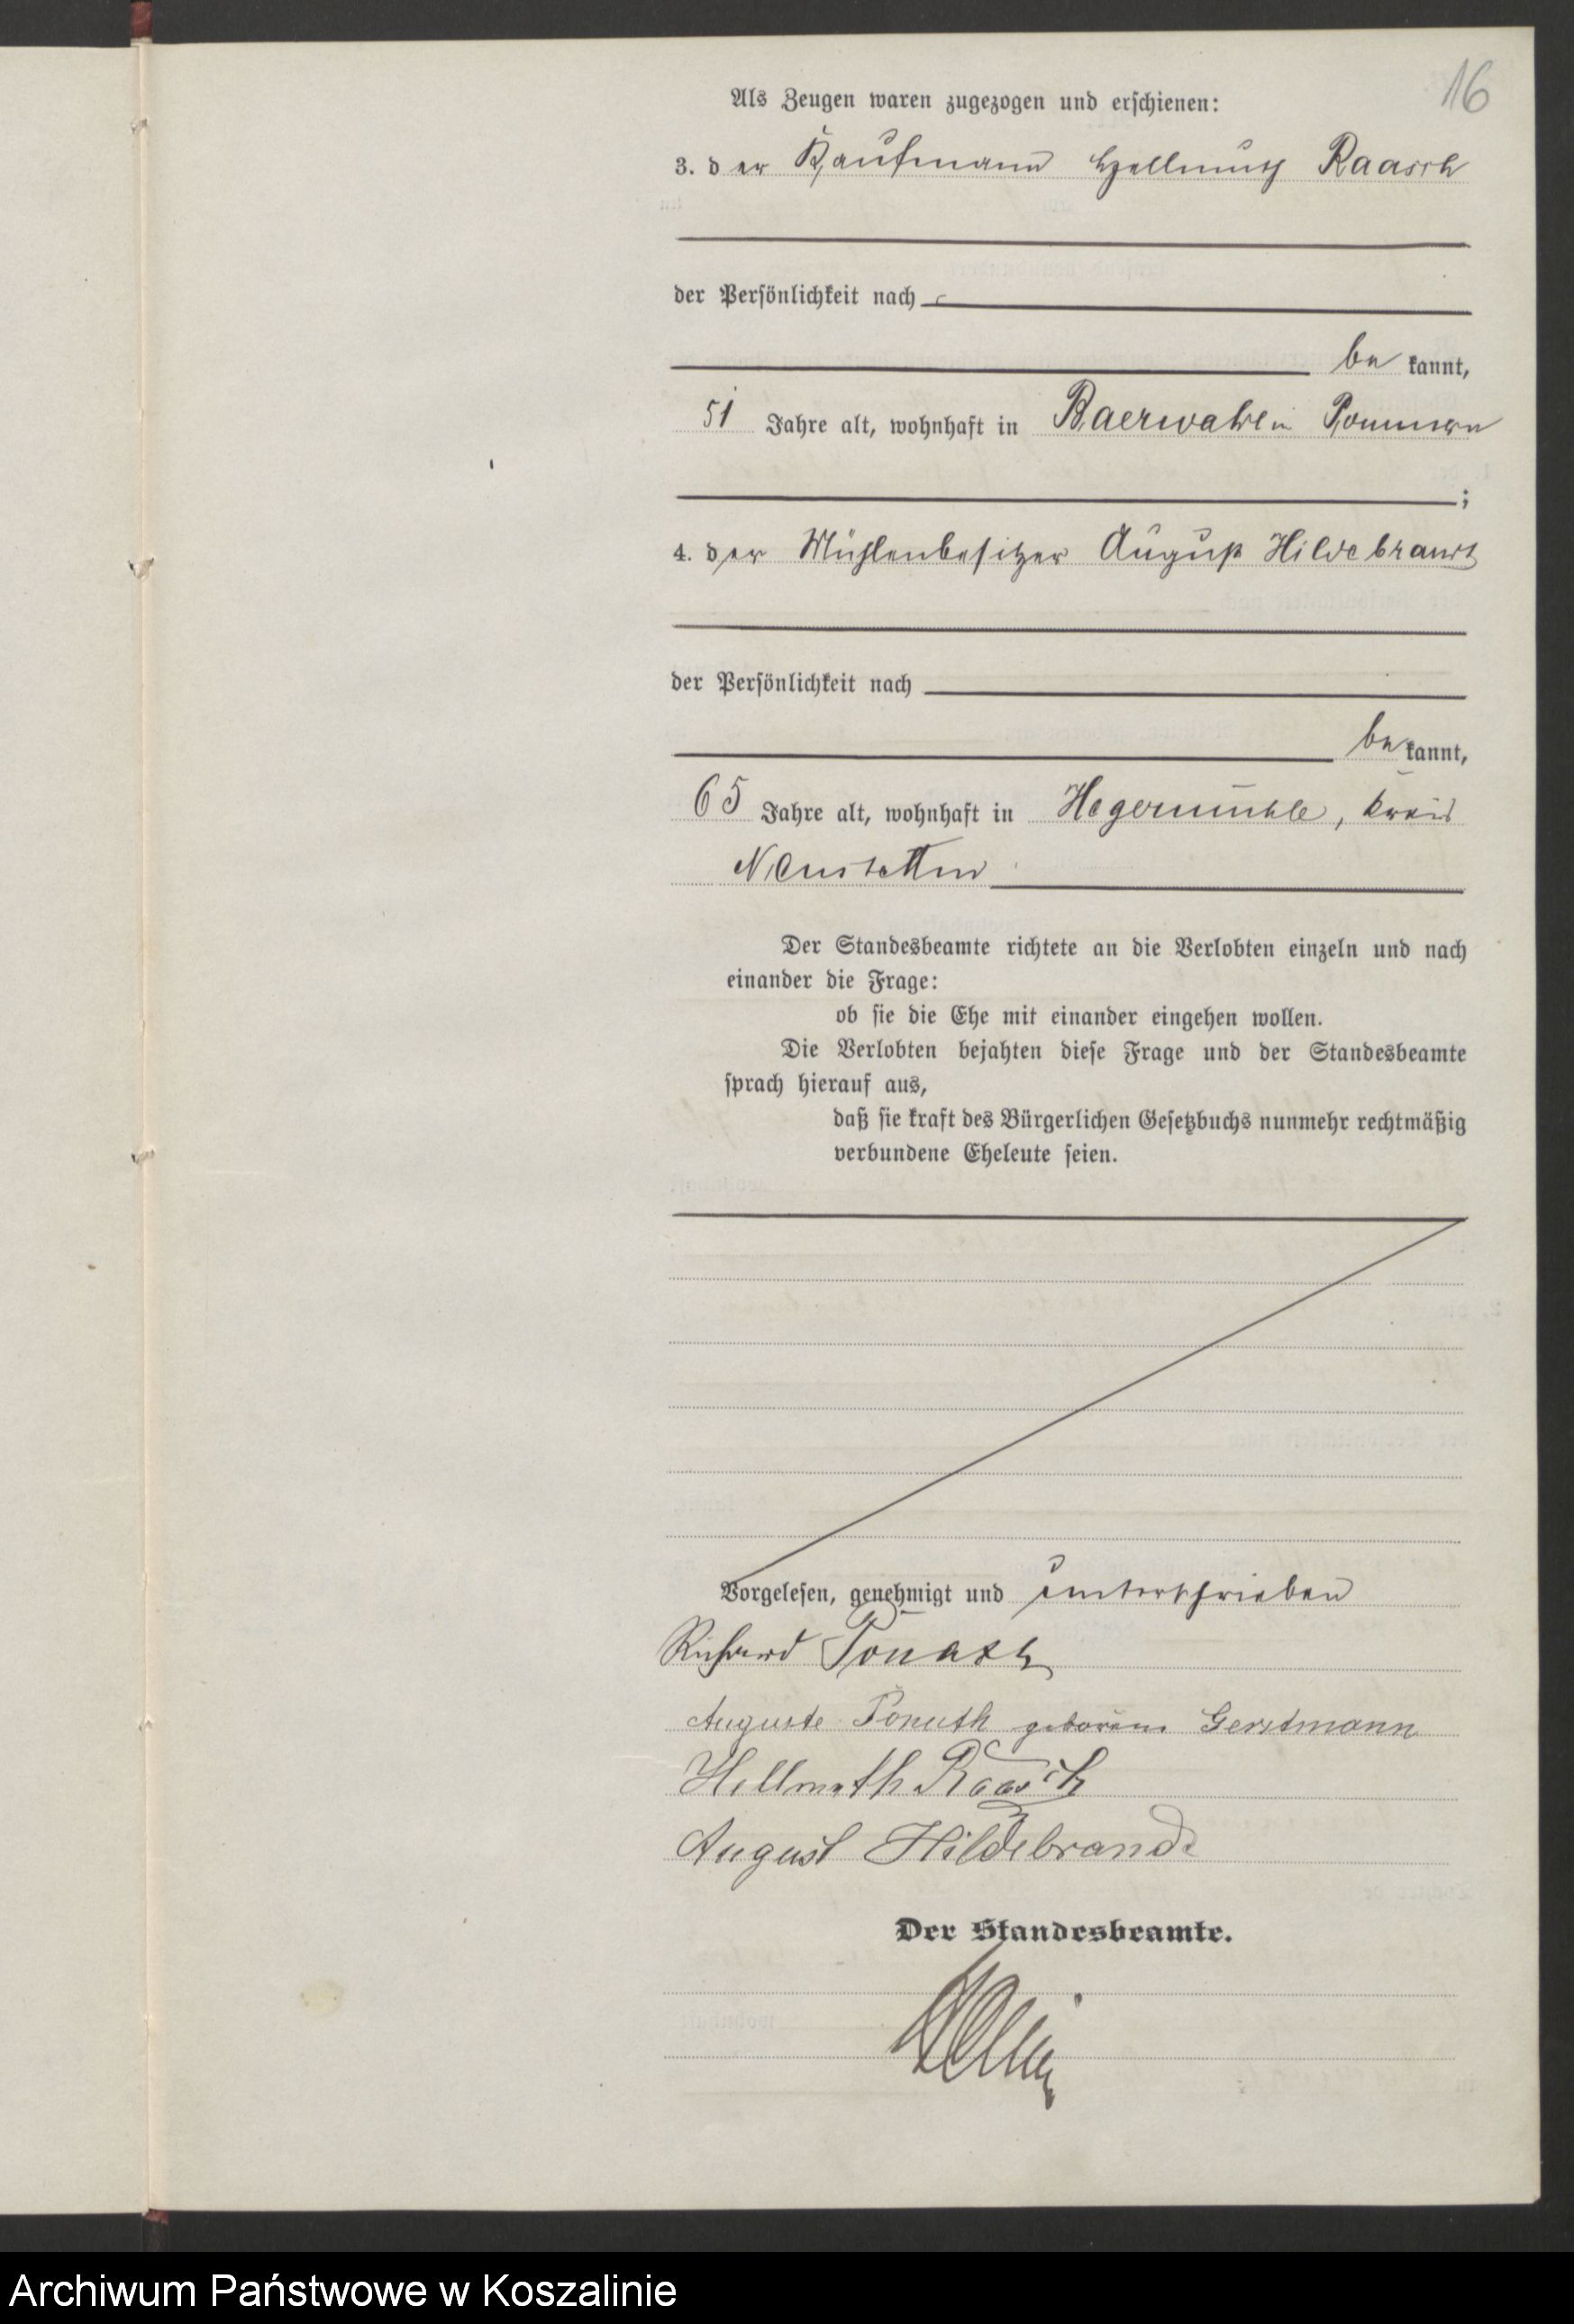 16
Als Zeugen waren zugezogen und erschienen:
3. der Kaufmann Hellmuth Raasch
der Persönlichkeit nach
be kannt,
51 Jahre alt, wohnhaft in Baerwalde in Pommern
;
4. der Mühlenbesitzer August Hildebrandt
der Persönlichkeit nach
be kannt,
65 Jahre alt, wohnhaft in Hegermühle, Kreis
Neustettin
Der Standesbeamte richtete an die Verlobten einzeln und nach
einander die Frage:
ob sie die Ehe mit einander eingehen wollen.
Die Verlobten bejahten diese Frage und der Standesbeamte
sprach hierauf aus,
daß sie kraft des Bürgerlichen Gesetzbuchs nunmehr rechtmäßig
verbundene Eheleute seien.
Vorgelesen, genehmigt und unterschrieben
Richard
Auguste geborene Gerstmann
Hellmuth Raasch
August Hildebrandt
Der Standesbeamte.
Archiwum Państwowe w Koszalinie